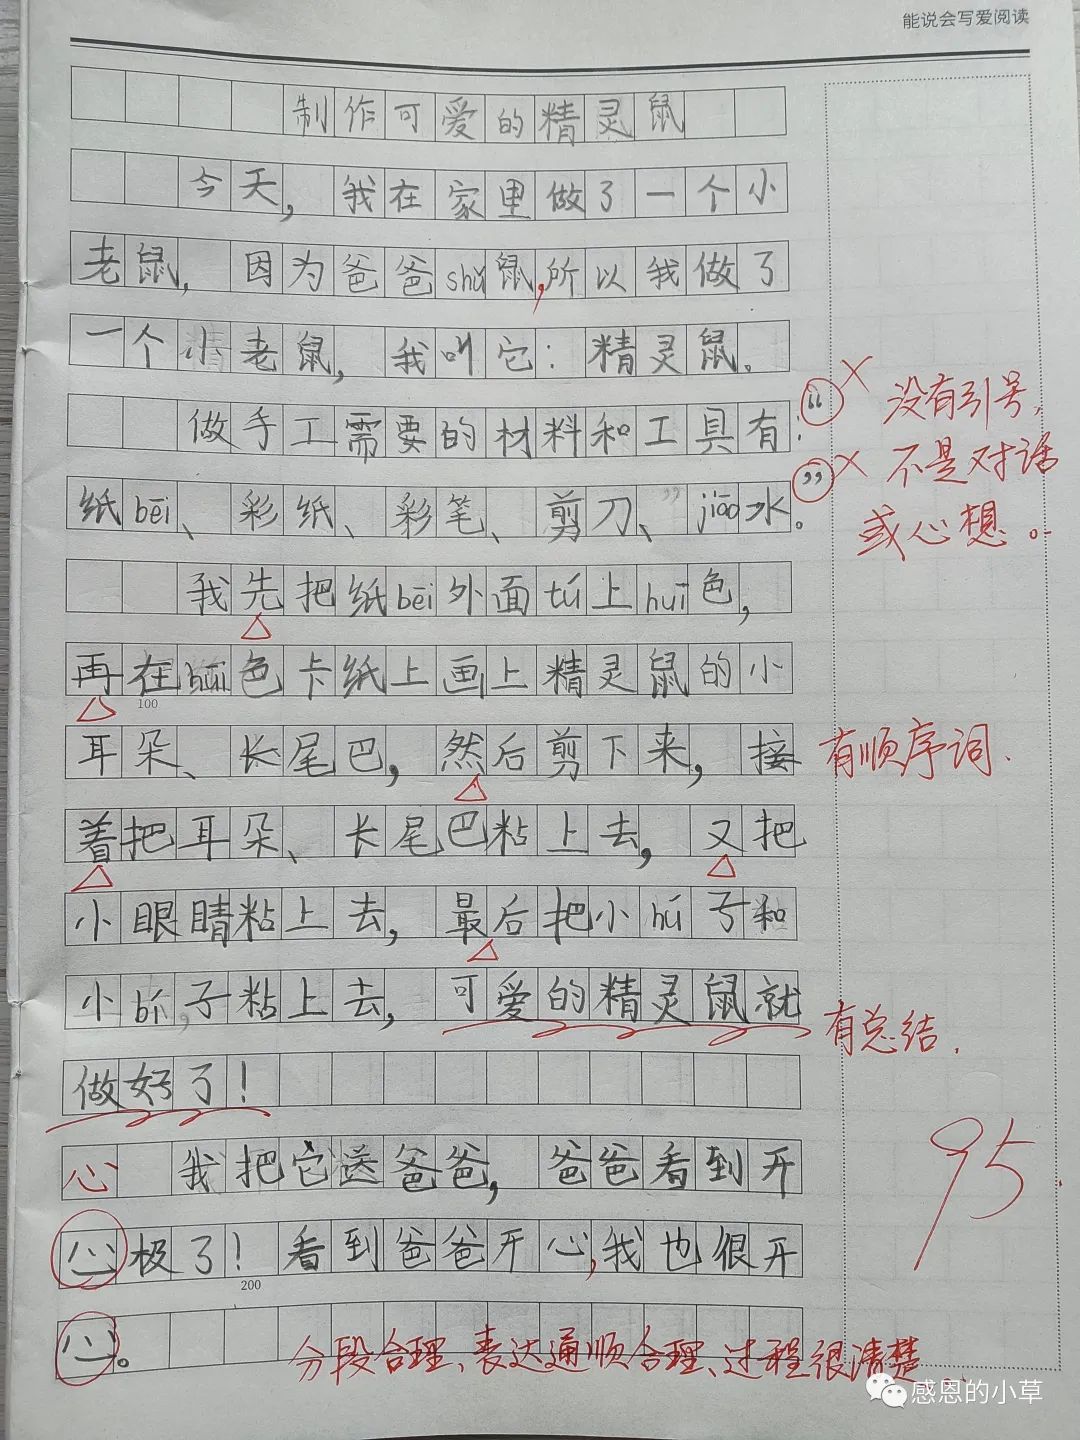 能说会写爱阅读
制作可爱的精灵鼠
今天，我在家里做了一个小
老鼠，因为爸爸shǔ鼠，所以我做了
一个小老鼠，我叫它：精灵鼠。
做手工需要的材料和工具有：“
× 没有引号，
纸bēi、彩纸、彩笔、剪刀、jiāo水。”
× 不是对话
或心想。
我先把纸bēi外面tú上huī色，
再在huī色卡纸上画上精灵鼠的小
100
耳朵、长尾巴，然后剪下来，接
有顺序词.
着把耳朵、长尾巴粘上去，又把
小眼睛粘上去，最后把小hú子和
小bí子粘上去，可爱的精灵鼠就
有总结.
做好了！
心 我把它送爸爸，爸爸看到开
95
心极了！看到爸爸开心，我也很开
200
心。
分段合理、表达通顺合理、过程很清楚.
感恩的小草